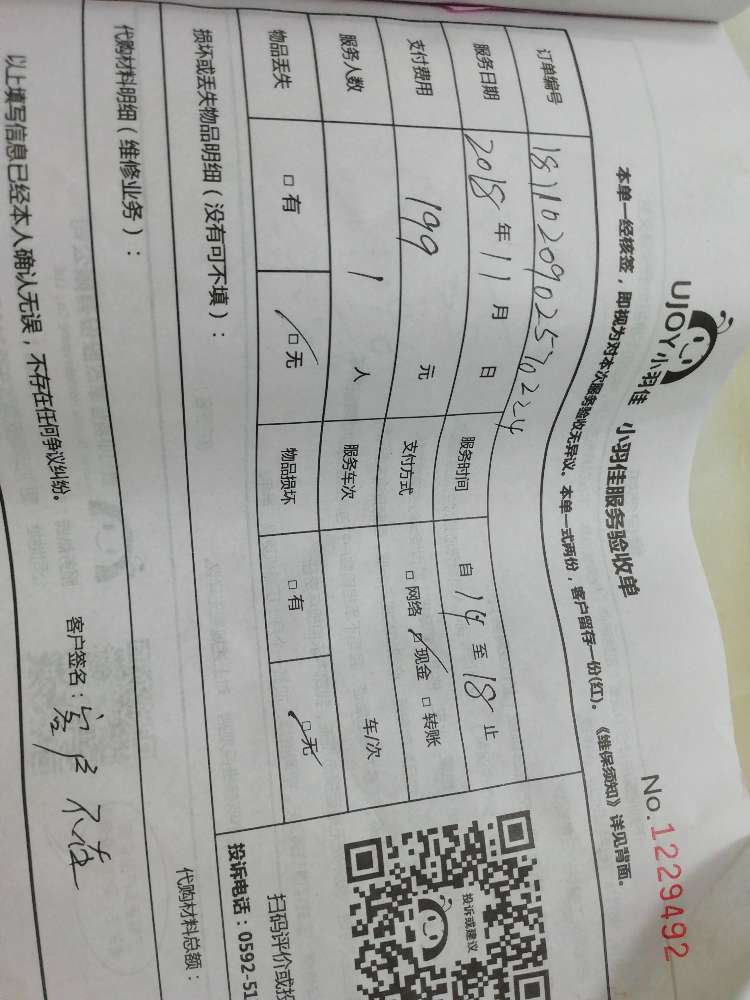 UJOY小羽佳 小羽佳服务验收单 No.1229492
本单一经核签，即视为对本次服务验收无异议。本单一式两份，客户留存一份(红)。《维保须知》详见背面。
订单编号 1811020902570224
服务日期 2018年11月 日 服务时间 自14至18止
支付费用 199 元 支付方式 □网络 ☑现金 □转账
服务人数 1 人 服务车次 车/次
物品丢失 □有 ☑无 物品损坏 □有 ☑无
损坏或丢失物品明细（没有可不填）：
代购材料明细（维修业务）： 代购材料总额：
以上填写信息已经本人确认无误，不存在任何争议纠纷。 客户签名：客户不在
投诉或建议
扫码评价或投
投诉电话：0592-51